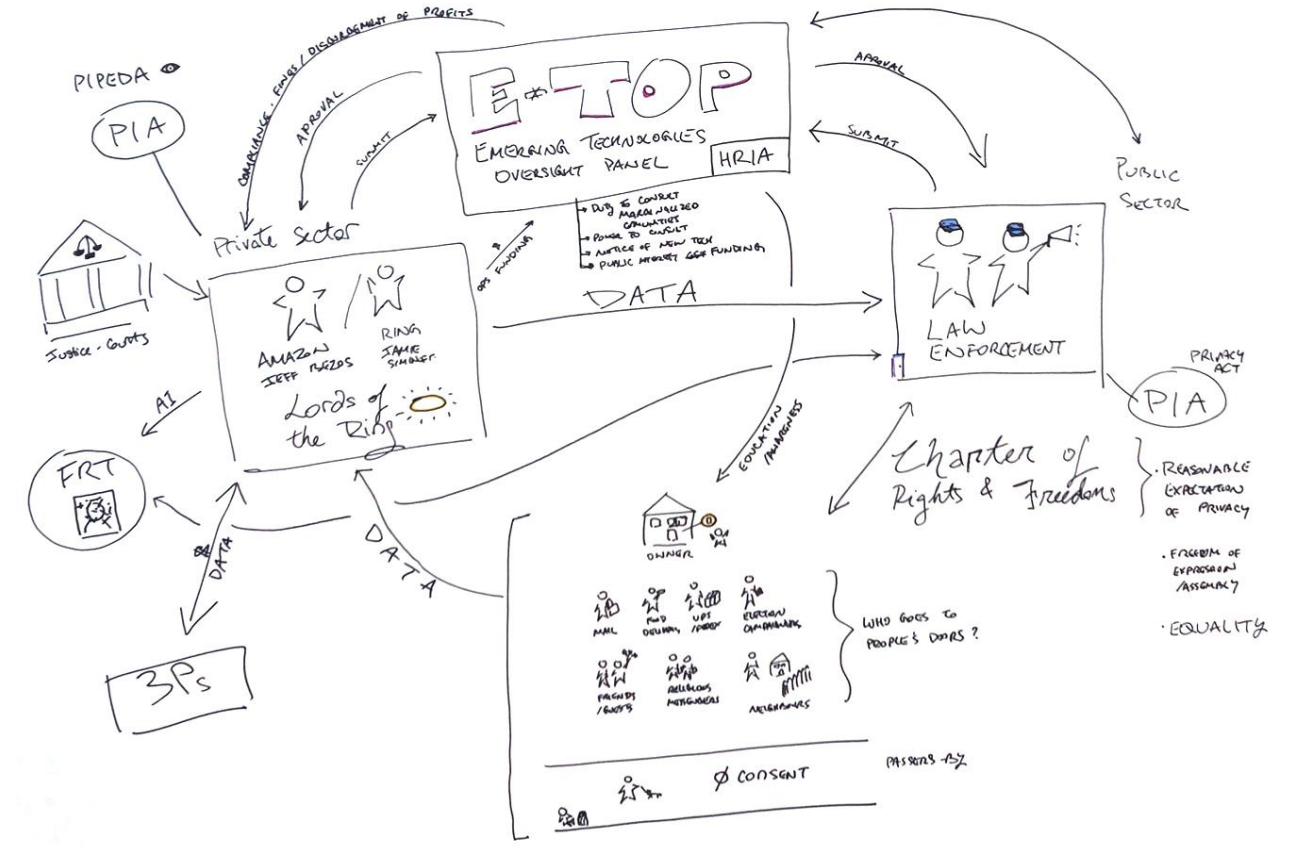 COMPLIANCE · FINES / DISGORGEMENT OF PROFITS
PIPEDA
PIA
APPROVAL
SUBMIT
E-TOP
EMERGING TECHNOLOGIES
OVERSIGHT PANEL
HRIA
APPROVAL
SUBMIT
PUBLIC
SECTOR
DUTY TO CONSULT
MARGINALIZED
POWER TO CONSULT
NOTICE OF NEW TECH
PUBLIC INTEREST FUNDING
OPS FUNDING
$
Justice - Courts
Private Sector
AMAZON
JEFF BEZOS
RING
JAMIE
Lords of
the Ring
DATA
LAW
ENFORCEMENT
PRIVACY
ACT
PIA
AI
FRT
DATA
3Ps
DATA
EDUCATION
/AWARENESS
Chapter of
Rights & Freedoms
· REASONABLE
EXPECTATION
OF PRIVACY
· FREEDOM OF
EXPRESSION
/ASSEMBLY
· EQUALITY
OWNER
MAIL
FOOD
UPS
ELECTION
FRIENDS
/GUESTS
RELIGIOUS
NEIGHBOURS
WHO GOES TO
PEOPLE'S DOORS?
Ø CONSENT
PASSERS-BY